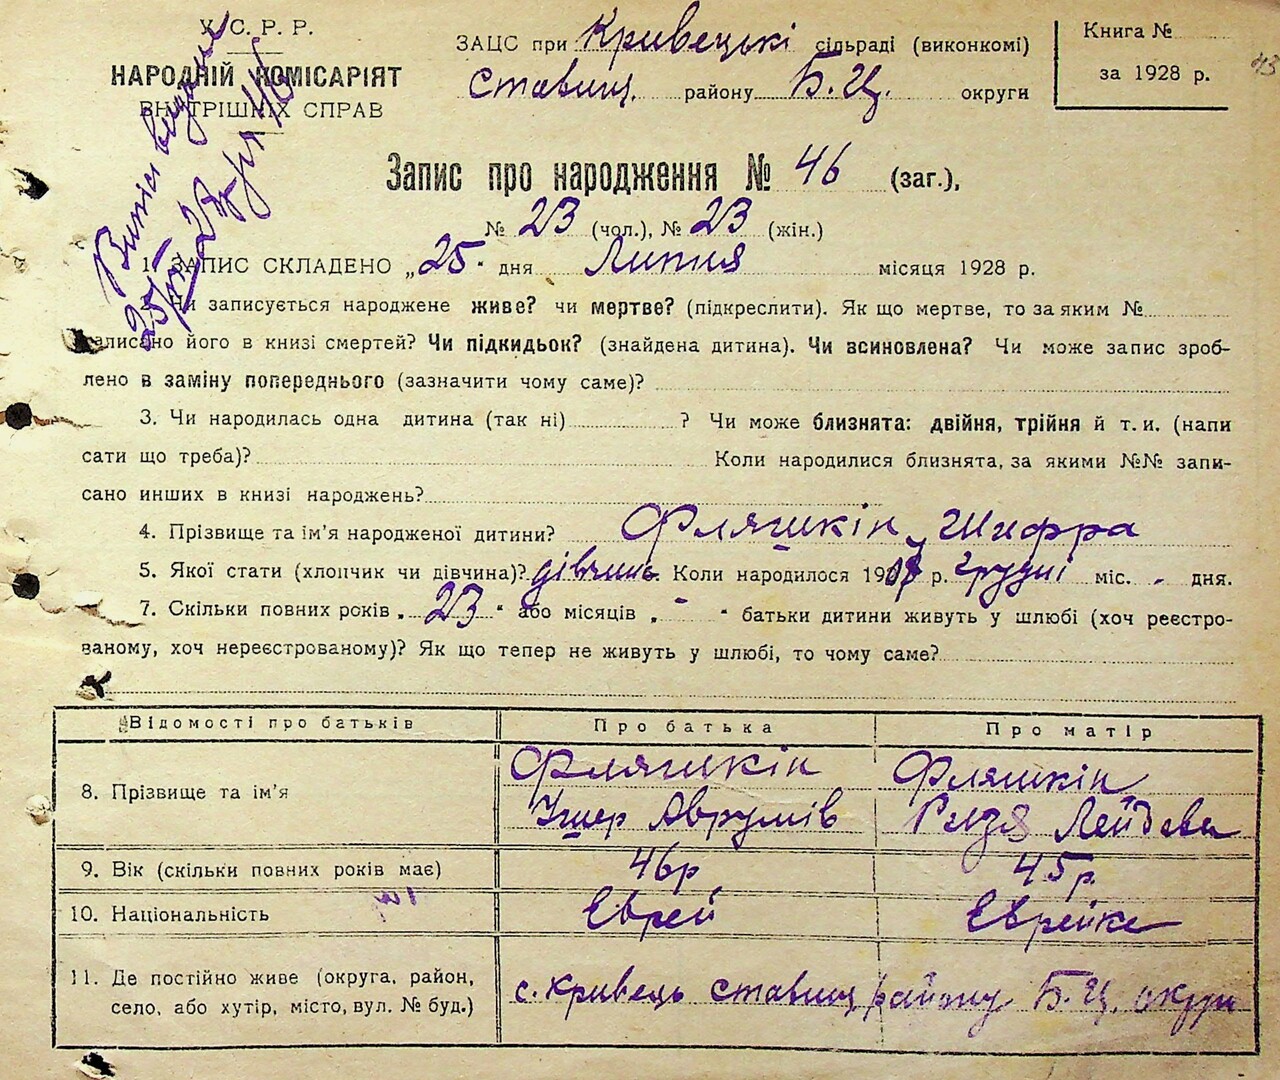 У. С. Р. Р.
НАРОДНІЙ КОМІСАРІЯТ
ВНУТРІШНІХ СПРАВ
ЗАЦС при Кривецькі сільраді (виконкомі)
Ставищ. району Б.Ц. округи
Книга №
за 1928 р.
43
Запис про народження № 46 (заг.),
№ 23 (чол.), № 23 (жін.)
1. ЗАПИС СКЛАДЕНО „25" дня Липня місяця 1928 р.
Чи записується народжене живе? чи мертве? (підкреслити). Як що мертве, то за яким №
записано його в книзі смертей? Чи підкидьок? (знайдена дитина). Чи всиновлена? Чи може запис зроб-
лено в заміну попереднього (зазначити чому саме)?
3. Чи народилась одна дитина (так ні) ? Чи може близнята: двійня, трійня й т. и. (напи
сати що треба)? Коли народилися близнята, за якими №№ запи-
сано инших в книзі народжень?
4. Прізвище та ім'я народженої дитини? Фляшкін Шифра
5. Якої стати (хлопчик чи дівчина)? дівчина. Коли народилося 1907 р. Грудні міс. - дня.
7. Скільки повних років „ 23 " або місяців „ - " батьки дитини живуть у шлюбі (хоч реєстро-
ваному, хоч нереєстрованому)? Як що тепер не живуть у шлюбі, то чому саме?
Відомості про батьків Про батька Про матір
8. Прізвище та ім'я Фляшкін Фляшкін
Ушер Аврумів Лейдова
9. Вік (скільки повних років має) 46р 45р.
10. Національність Еврей Еврейка
11. Де постійно живе (округа, район,
село, або хутір, місто, вул. № буд.) с. Кривець Ставищ району Б.Ц. округи
Випис видано